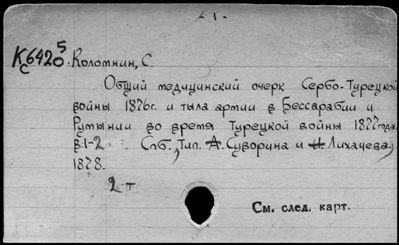 К 6420 5
С
Коломнин, С.
Общий медицинский очерк Сербо-Турецкой
войны 1876г. и тыла армии в Бессарабии и
Румынии во время Турецкой войны 1877 года.
В.1-2. Спб., Тип. А. Суворина и Лихачева,
1878.
2 т
См. след. карт.